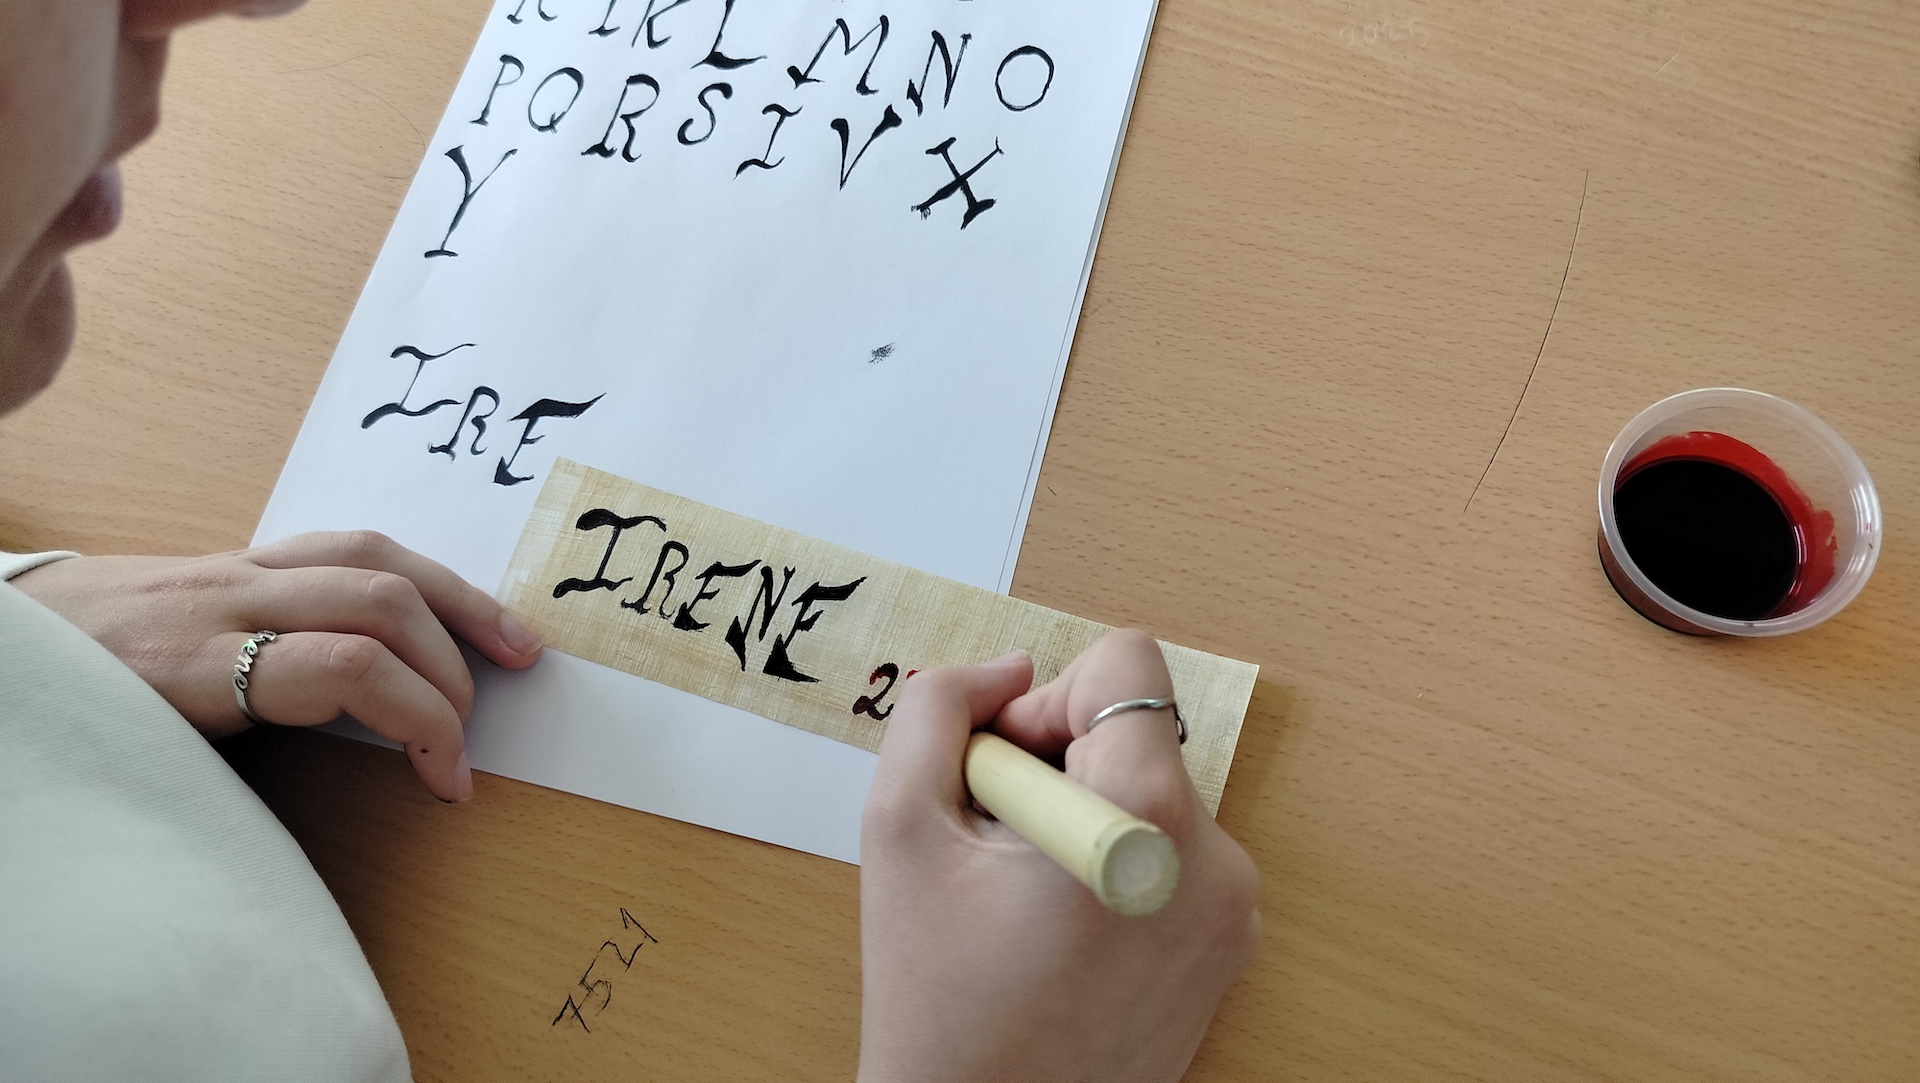 I K L M N O
P Q R S T V X
Y
IRE
IRENE
2
Irene
7521